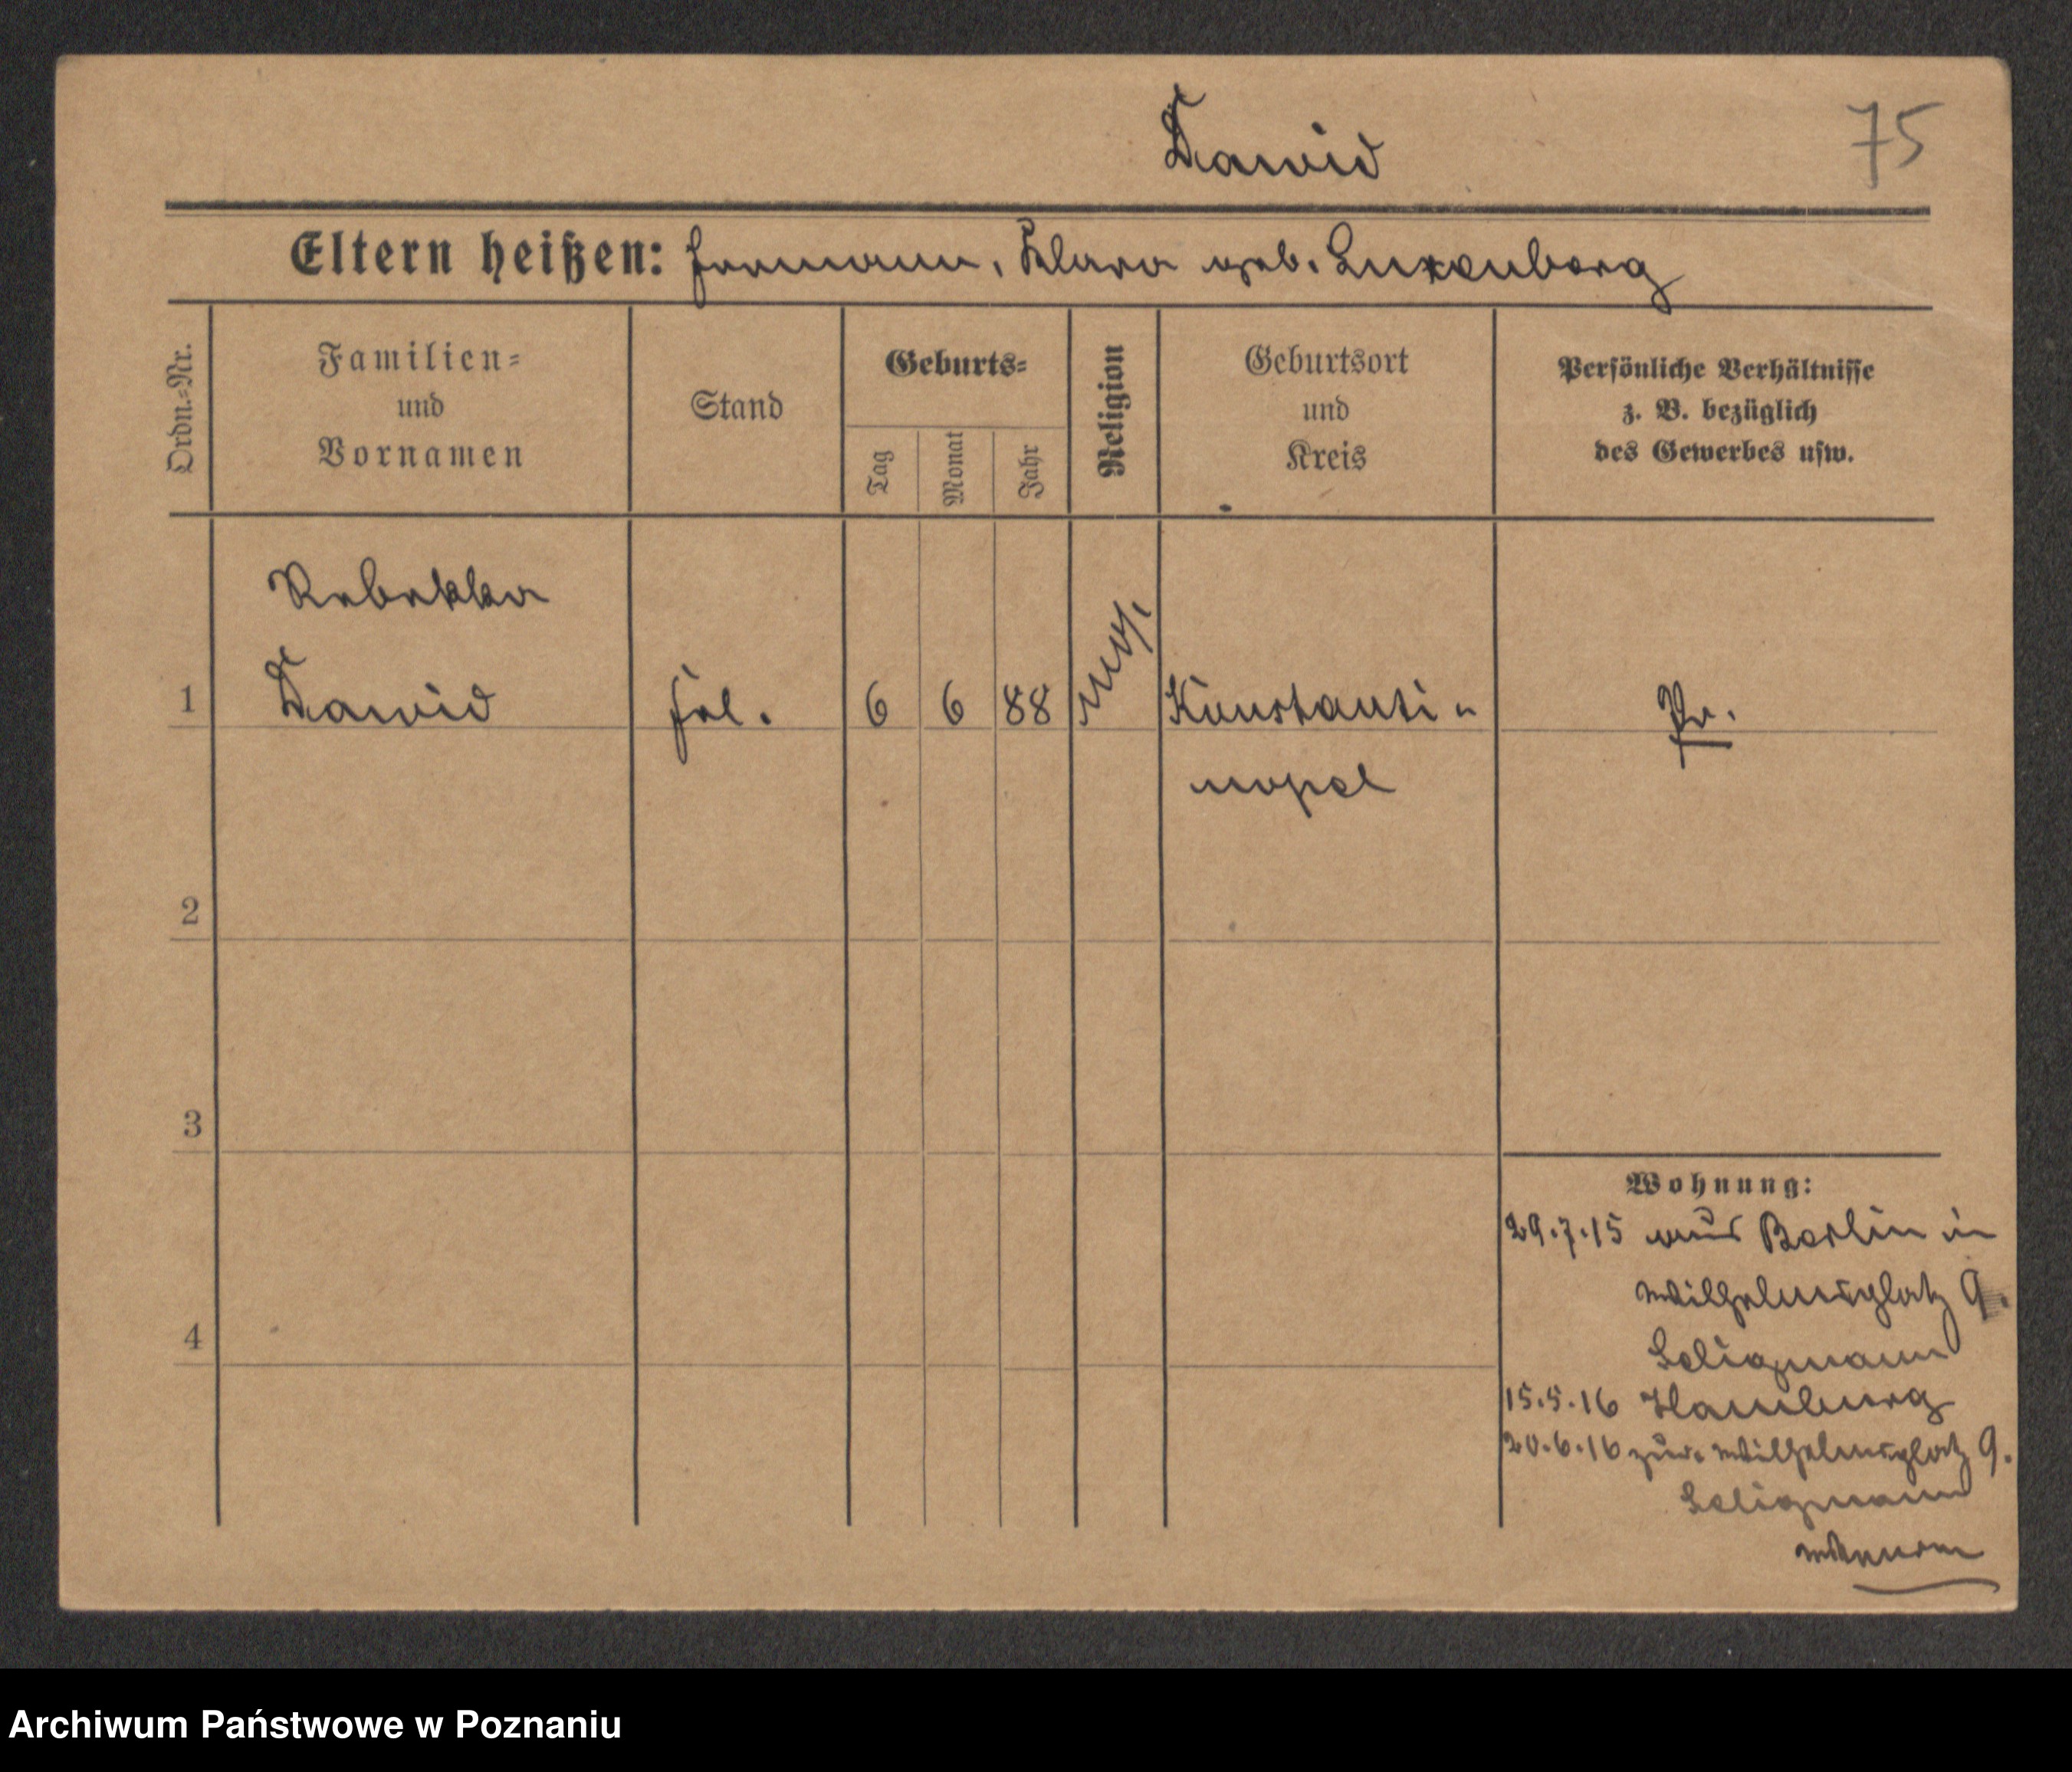 Dawid
75
Eltern heißen: Hermann, Klara geb. Luxenberg
Ordn.=Nr.
Familien=
und
Vornamen
Stand
Geburts=
Tag
Monat
Jahr
Religion
Geburtsort
und
Kreis
Persönliche Verhältnisse
z. B. bezüglich
des Gewerbes usw.
Rebekka
1 Dawid frl. 6 6 88 mos. Konstanti-
nopel
Pr.
2
3
4
Wohnung:
29.7.15 aus Berlin in
Wilhelmsplatz 9.
Seligmann
15.5.16 Hamburg
20.6.16 zur. Wilhelmsplatz 9.
Seligmann
Archiwum Państwowe w Poznaniu